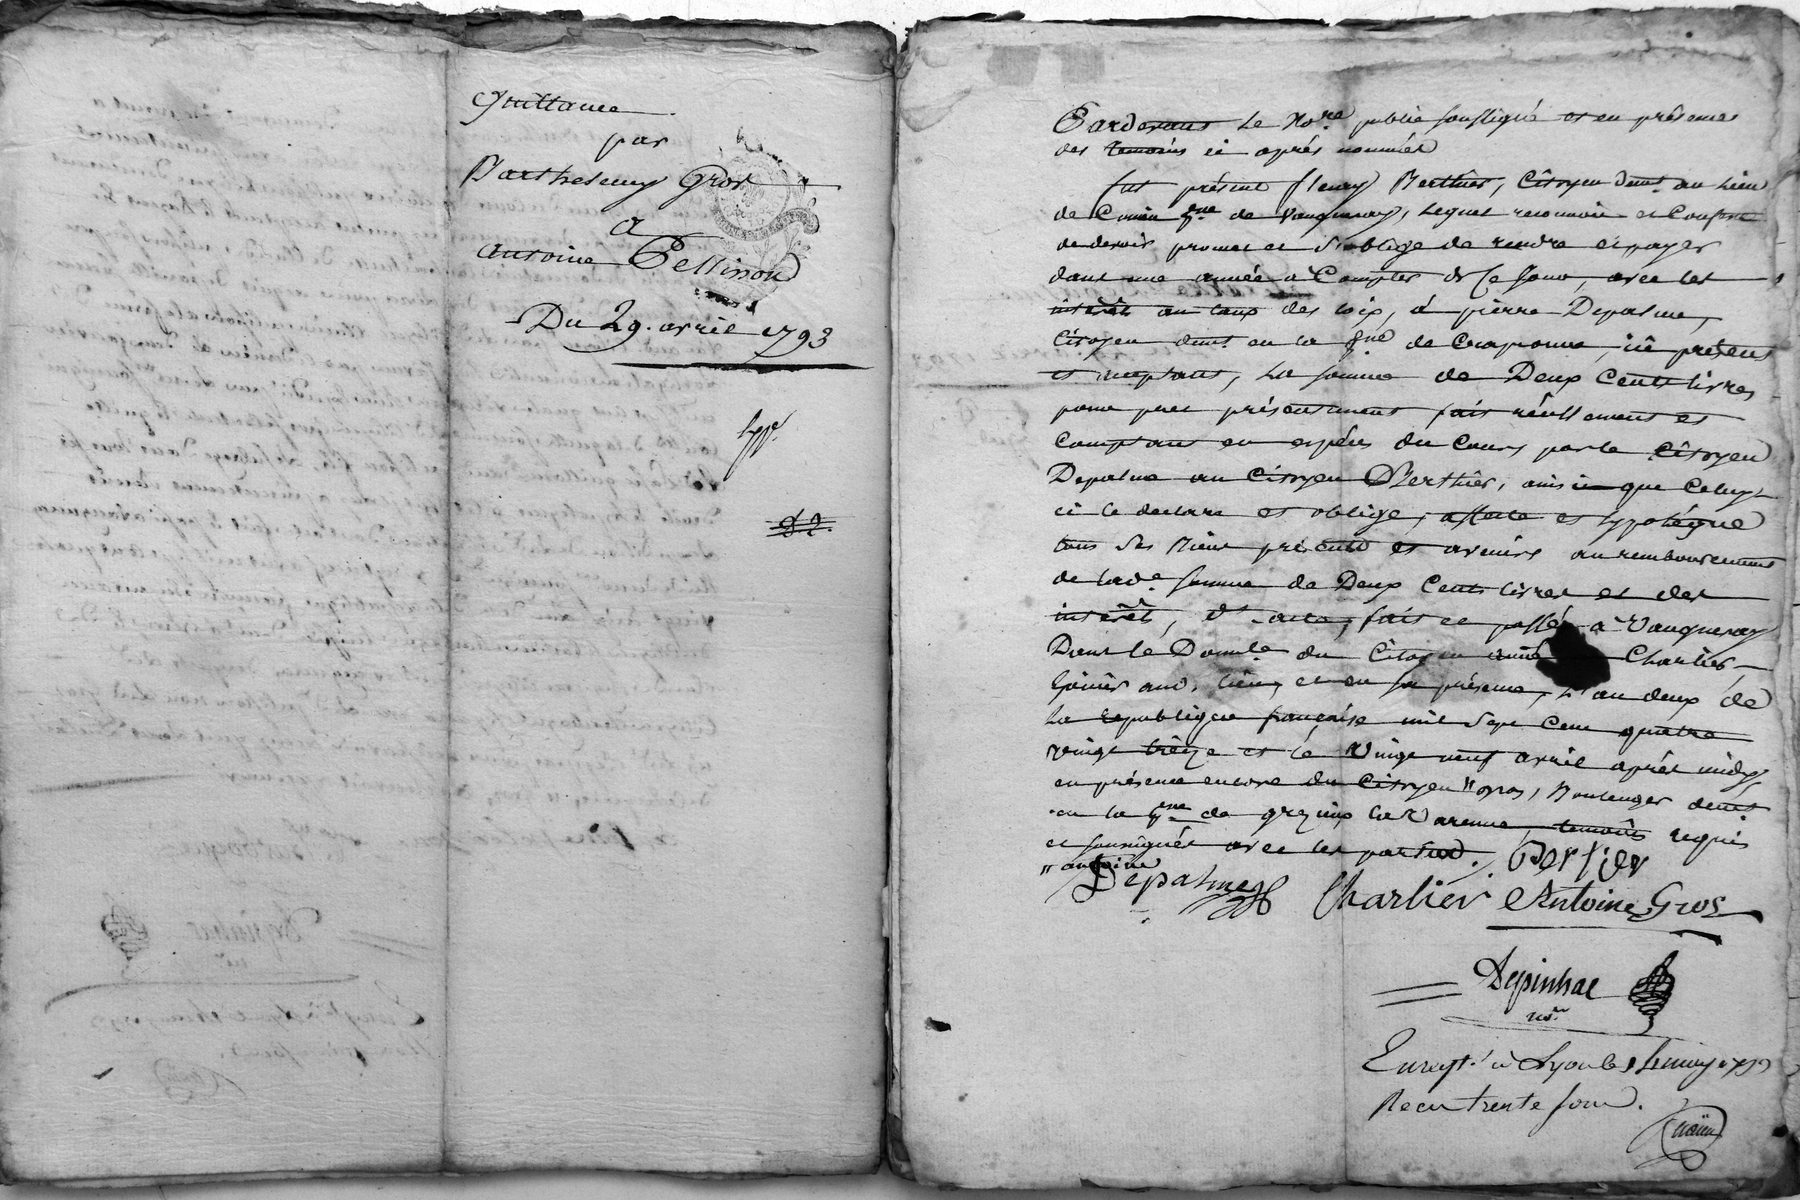 Quittance
par
Barthelemy Gros
a
antoine Pellisson
Du 29. avril 1793
Pardevant Le No.re public soussigné et en présence
des temoins ci après nommés
fut présent fleury Berthier, Citoyen demt. au Lieu
de p.sse de Vaugneray, Lequel reconnoit et Confesse
de devoir promet et S'oblige de rendre et payer
dans une année a Compter de Ce Jour, avec les
intérêts au taux des loix, à pierre Depalme,
Citoyen demt. en la p.sse de Craponne, ici présent
et acceptant, La somme de Deux Cents livres
pour prêt présentement fait réellement et
Comptant en espèces du Cours par le Citoyen
Depalme au Citoyen Berthier, ainsi que Celuy
ci le declare et oblige, affecte et hypotéque
tous Ses Biens présents et avenirs au remboursement
de lad.e somme de Deux Cents livres et des
intérêts, Dt. acte, fait et passé a Vaugneray
Dans le Domile. du Citoyen Charlier
et en sa présence, L'an deux de
La republique française mil Sept Cent quatre
vingt treize et le Vingt neuf avril après midy
en présence encore du Citoyen " Gros, Boulanger demt.
en la p.sse de grezieux la Varenne, temoins requis
et soussignés avec les parties.
" antoine
Bertier
Depalme Charlier Antoine Gros
Depinhac
no.re
Enregt. à Lyon le may 1793
Recu trente sous.